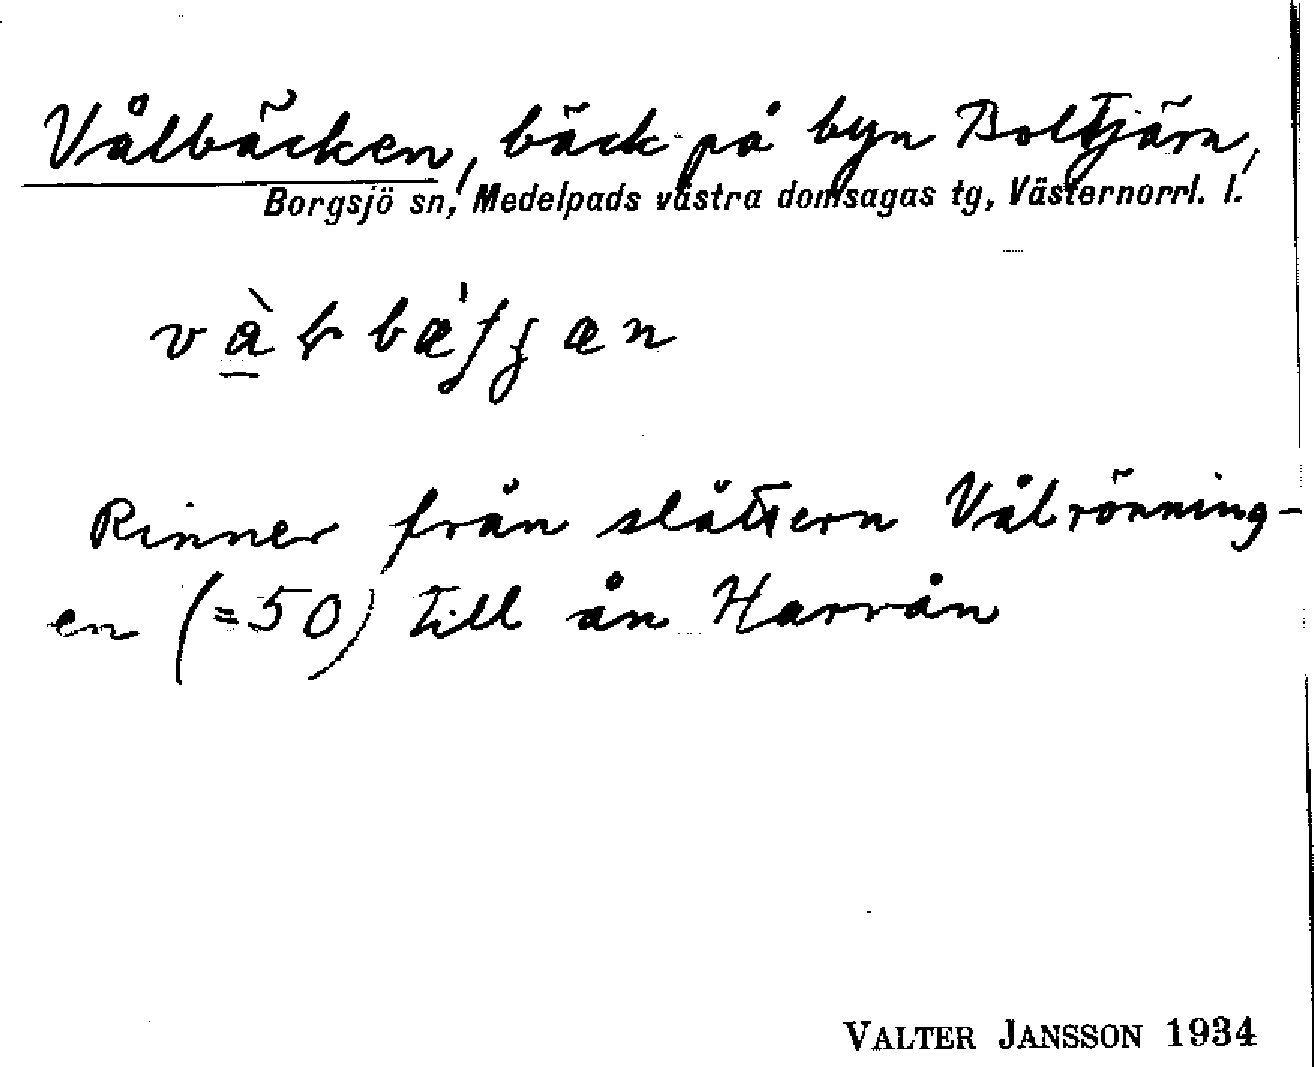 Vålbäcken, bäck på byn Boltjärn,
Borgsjö sn, Medelpads västra domsagas tg, Västernorrl. l.
Rinner från slåttern Vålrönning-
en (=50) till ån Harrån
VALTER JANSSON 1934